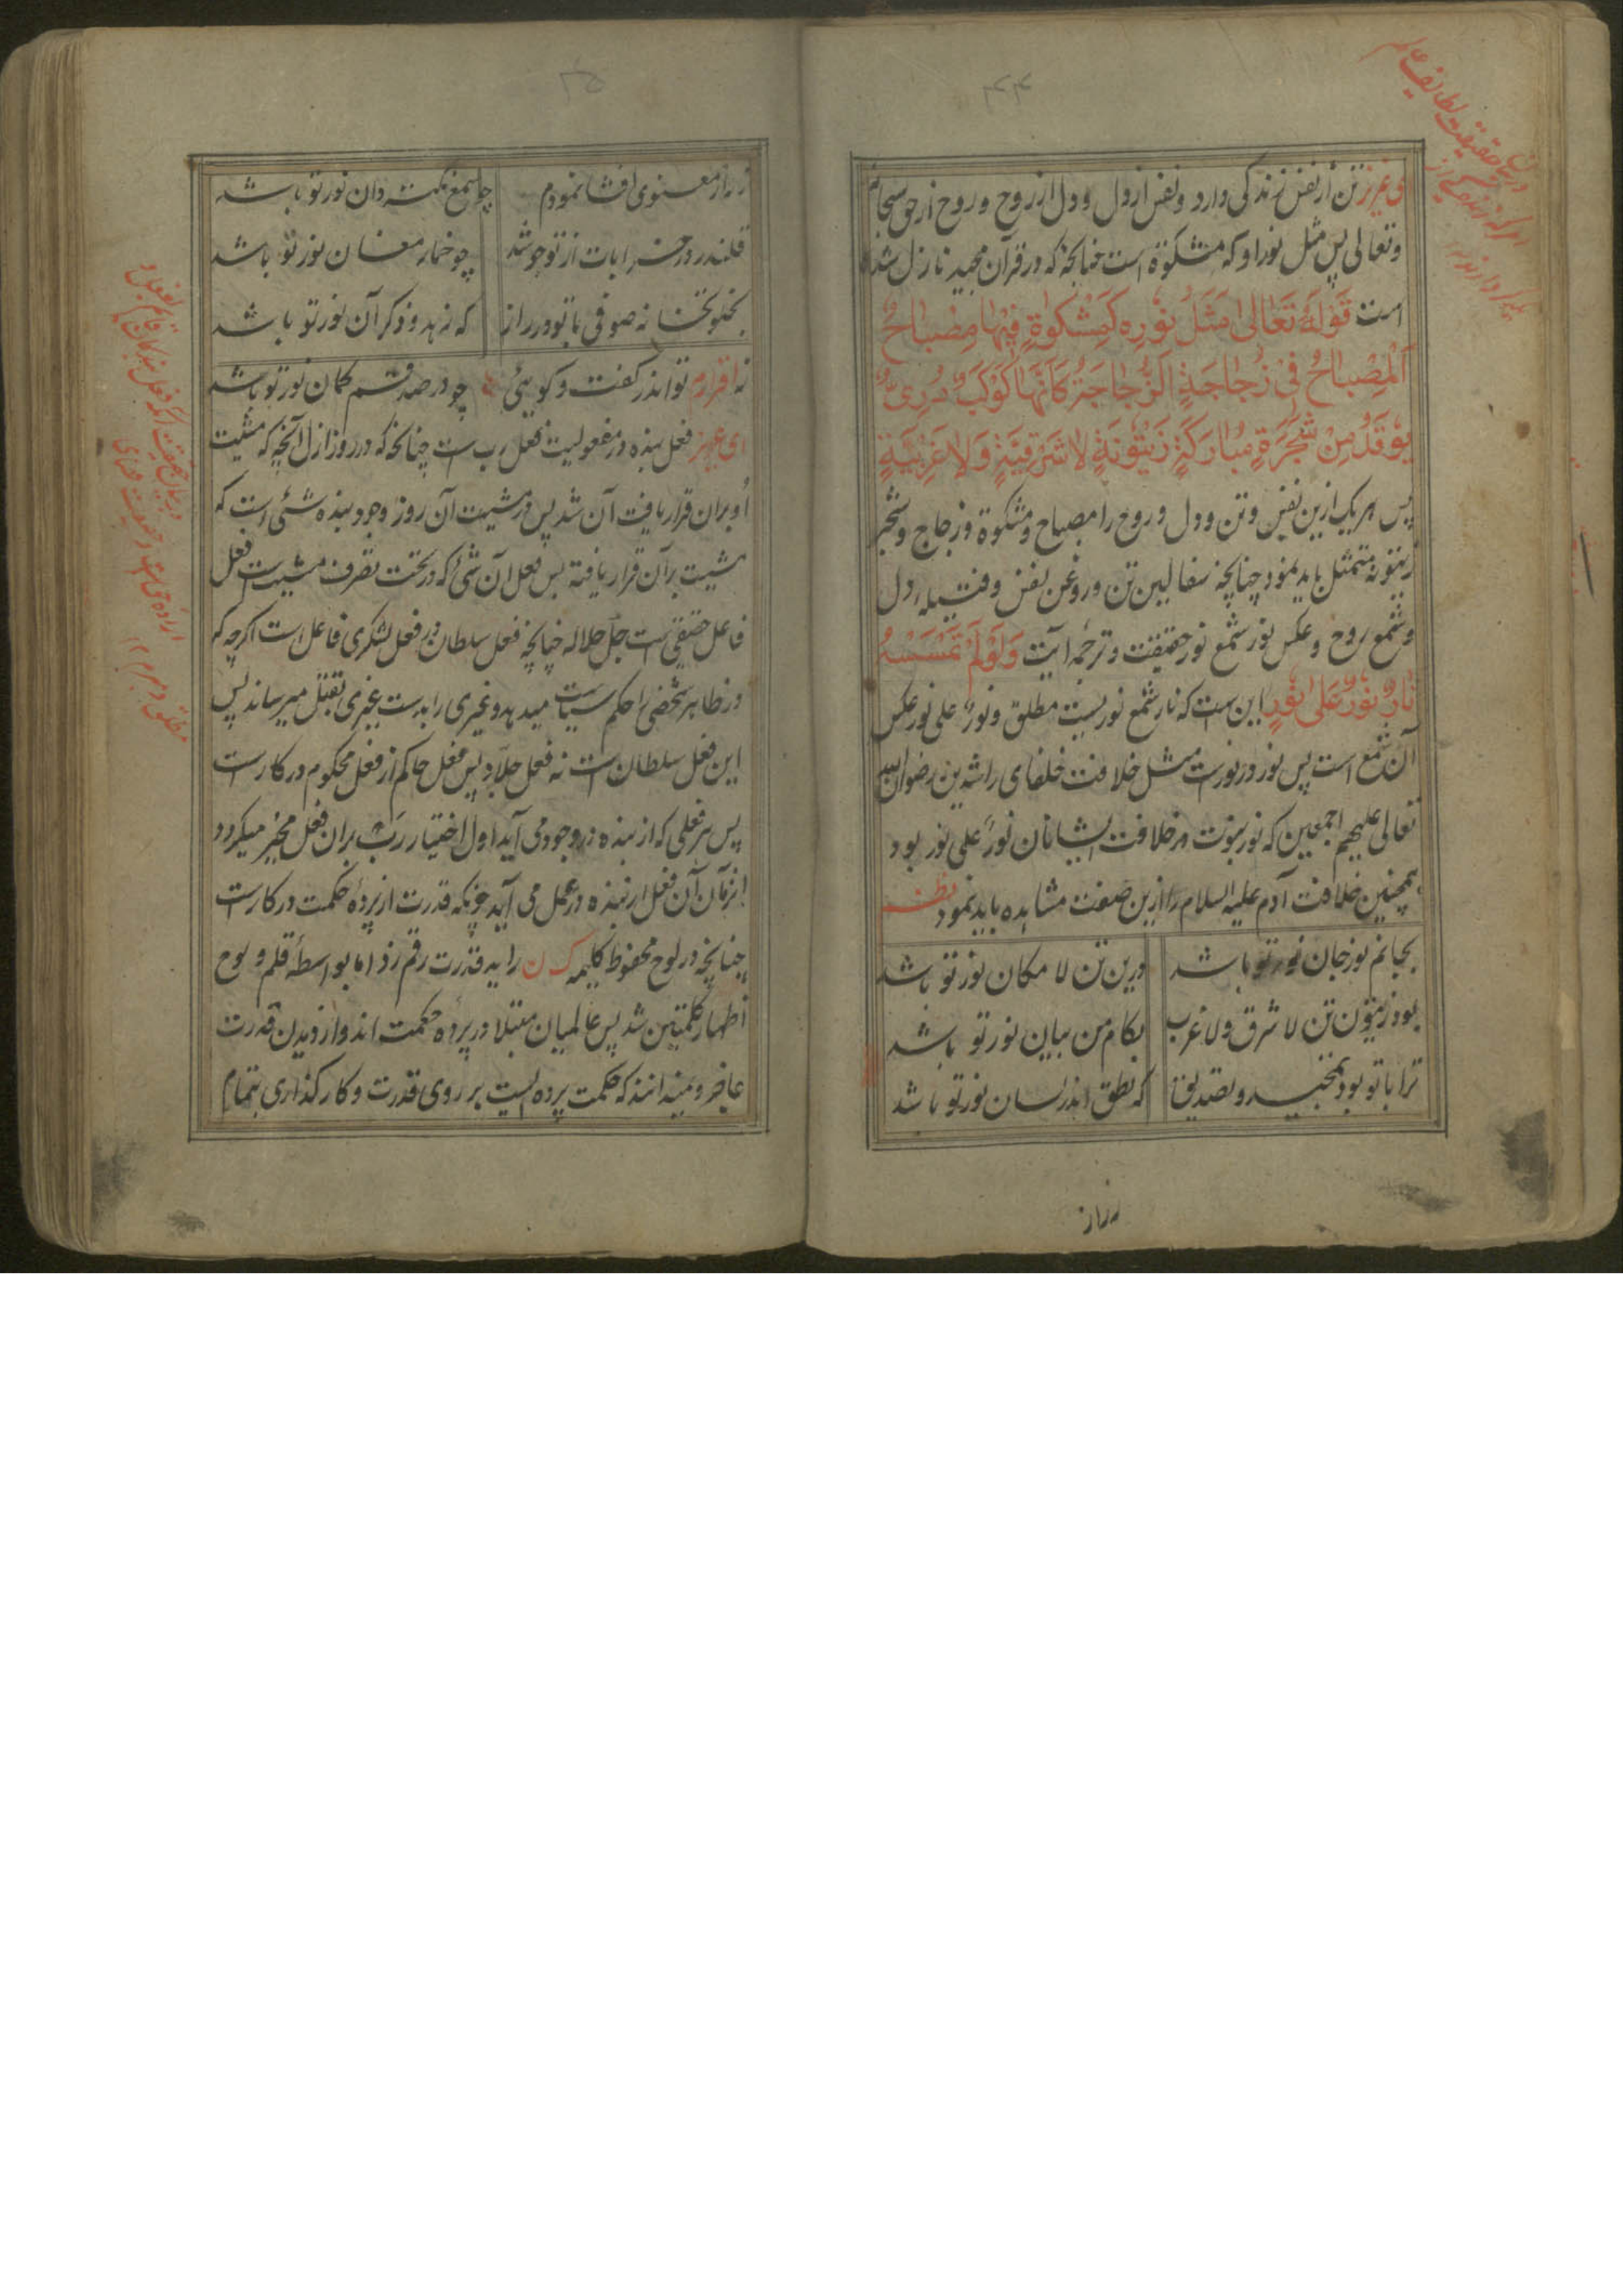 ۴۴
ی عزیز تن از نفس زندگی دارد و نفس از دل و دل از روح و روح از حق سبحانه
و تعالی پس مثل نور او که مشکوة است چنانچه که در قرآن مجید نازل شده
است قَوْلُهُ تَعَالیٰ مَثَلُ نُوْرِهِ كَمِشْكٰوةٍ فِيْهَا مِصْبَاحٌ
اَلْمِصْبَاحُ فِیْ زُجَاجَةٍ اَلزُّجَاجَةُ كَاَنَّهَا كَوْكَبٌ دُرِّیٌّ
يُوْقَدُ مِنْ شَجَرَةٍ مُبَارَكَةٍ زَيْتُوْنَةٍ لَا شَرْقِيَّةٍ وَلَا غَرْبِيَّةٍ
پس هر یک ازین نفس و تن و دل و روح را مصباح و مشکوة و زجاج و شجر
زیتونه متمثل باید نمود چنانچه سفالین تن و روغن نفس و فتیله دل
و شمع روح و عکس نور شمع نور حقیقت و ترجمه آیت وَلَوْ لَمْ تَمْسَسْهُ
نَارٌ نُوْرٌ عَلیٰ نُوْرٍ این ست که نار شمع نوریست مطلق و نورٌ علی نور عکس
آن شمع است پس نور در نورست مثل خلافت خلفای راشدین رضوان الله
تعالی علیهم اجمعین که نور نبوت در خلافت ایشانان نورٌ علی نور بود
همچنین خلافت آدم علیه السلام را ازین صفت مشاهده باید نمود نظم
بجانم نور جان نور تو باشد درین تن لا مکان نور تو باشد
بود زیتون تن لا شرق و لا غرب بکام من بیان نور تو باشد
ترا با تو بود تمجید و تصدیق که نطق اندر لسان نور تو باشد
زراز
۴۵
زراز معنوی افشا نمودم چو شمع نکته دان نور تو باشد
قلندر در خرابات از تو جوشد چو خمار مغان نور تو باشد
بخلوتخانه صوفی با تو در راز که زهد و ذکر آن نور تو باشد
نه اقرارم تو اندر گفت و گوئی چو در صد قسم گمان نور تو باشد
ای عزیز فعل بنده در مفعولیت فعل رب ست چنانچه که در روز ازل آنچه که مشیت
او بران قرار یافت آن شد پس در مشیت آن روز وجود بنده شئی است که
مشیت بر آن قرار یافته پس فعل آن شئ که در تحت تصرف مشیت است فعل
فاعل حقیقی است جل جلاله چنانچه فعل سلطان در فعل لشکری فاعل است اگرچه که
در ظاهر شخصی را حکم سیاست میدهد و غیری را بدست غیری بقتل میرساند پس
این فعل سلطان است نه فعل جلاد پس فعل حاکم از فعل محکوم در کارست
پس هر فعلی که از بنده در وجود می آید اول اختیار رب بران فعل مخیر میگردد
آنزمان آن فعل از بنده در عمل می آید چونکه قدرت از پرده حکمت در کارست
چنانچه در لوح محفوظ کلیمه ک ن را ید قدرت رقم زد اما بواسطه قلم و لوح
اظهار کلمتین شد پس عالمیان مبتلا در پرده حکمت اند و از دیدن قدرت
عاجز و میدانند که حکمت پرده ایست بر روی قدرت و کارگذاری بتمام